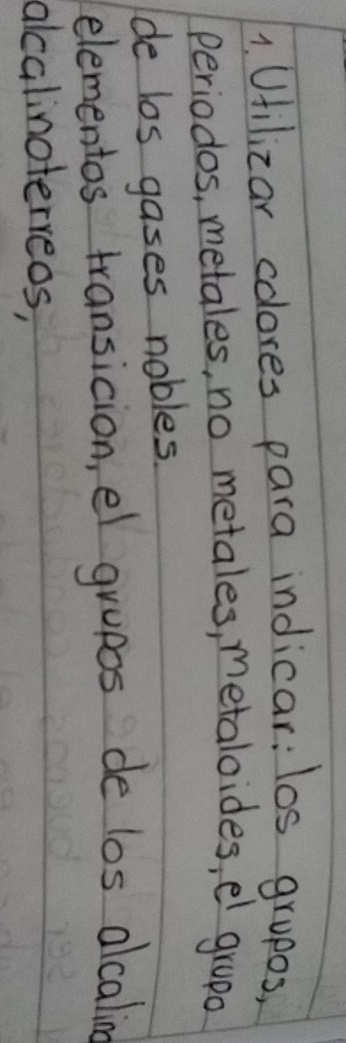 1. Utilizar colores para indicar: los grupos,
periodos, metales, no metales, metaloides, el grupo
de los gases nobles.
elementos transicion, el grupos de los alcalino
alcalinoterreos,